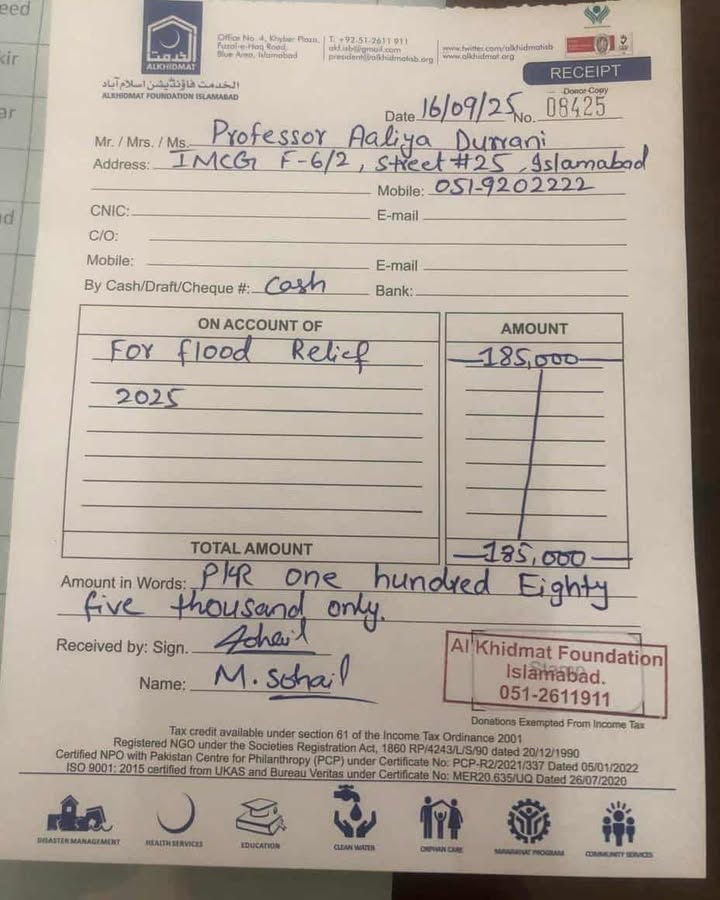 ALKHIDMAT
الخدمت فاؤنڈیشن اسلام آباد
ALKHIDMAT FOUNDATION ISLAMABAD
Office No. 4, Khyber Plaza,
Fuzal-e-Haq Road,
Blue Area, Islamabad
T: +92-51-2611 911
akf.isb@gmail.com
president@alkhidmatisb.org
www.twitter.com/alkhidmatisb
www.alkhidmat.org
RECEIPT
Donor Copy
Date 16/09/25 No. 08425
Mr. / Mrs. / Ms. Professor Aaliya Durrani
Address: IMCG F-6/2, Street #25, Islamabad
Mobile: 051-9202222
CNIC: E-mail
C/O:
Mobile: E-mail
By Cash/Draft/Cheque #: Cash Bank:
ON ACCOUNT OF AMOUNT
For flood Relief 185,000
2025
TOTAL AMOUNT 185,000
Amount in Words: PKR one hundred Eighty
five thousand only.
Received by: Sign. Sohail
Name: M. Sohail
Al Khidmat Foundation
Stamp
Islamabad.
051-2611911
Donations Exempted From Income Tax
Tax credit available under section 61 of the Income Tax Ordinance 2001
Registered NGO under the Societies Registration Act, 1860 RP/4243/L/S/90 dated 20/12/1990
Certified NPO with Pakistan Centre for Philanthropy (PCP) under Certificate No: PCP-R2/2021/337 Dated 05/01/2022
ISO 9001: 2015 certified from UKAS and Bureau Veritas under Certificate No: MER20.635/UQ Dated 26/07/2020
DISASTER MANAGEMENT
HEALTH SERVICES
EDUCATION
CLEAN WATER
ORPHAN CARE
MAWAKHAT PROGRAM
COMMUNITY SERVICES